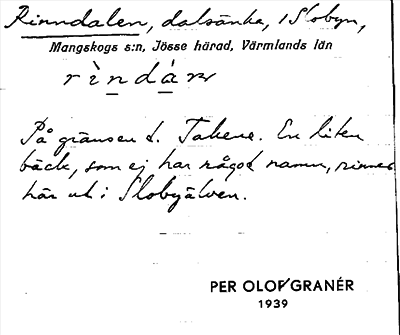 Rinndalen, dalsänka, i Slobyn,
Mangskogs s:n, Jösse härad, Värmlands län
rìndàṇ
På gränsen t. Takene. En liten
bäck, som ej har något namn, rinner
här ut i Slobyälven.
PER OLOF GRANÉR
1939